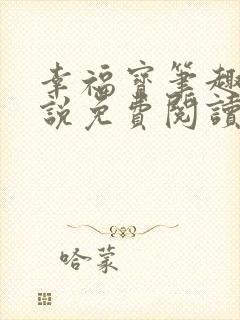 幸福寶筆趣
說免費閱讀
哈蒙